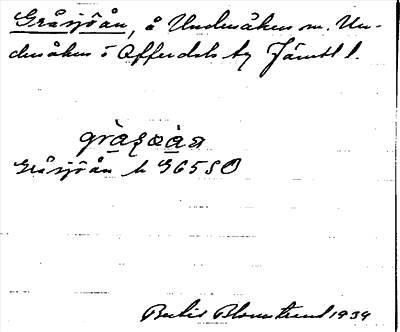 Gråsjöån, å Undersåkers sn. Un-
dersåkers o Offerdals tg Jämtl l.
gràʂɷàn
Gråsjöån h 965 SO
Blomstrand 1934